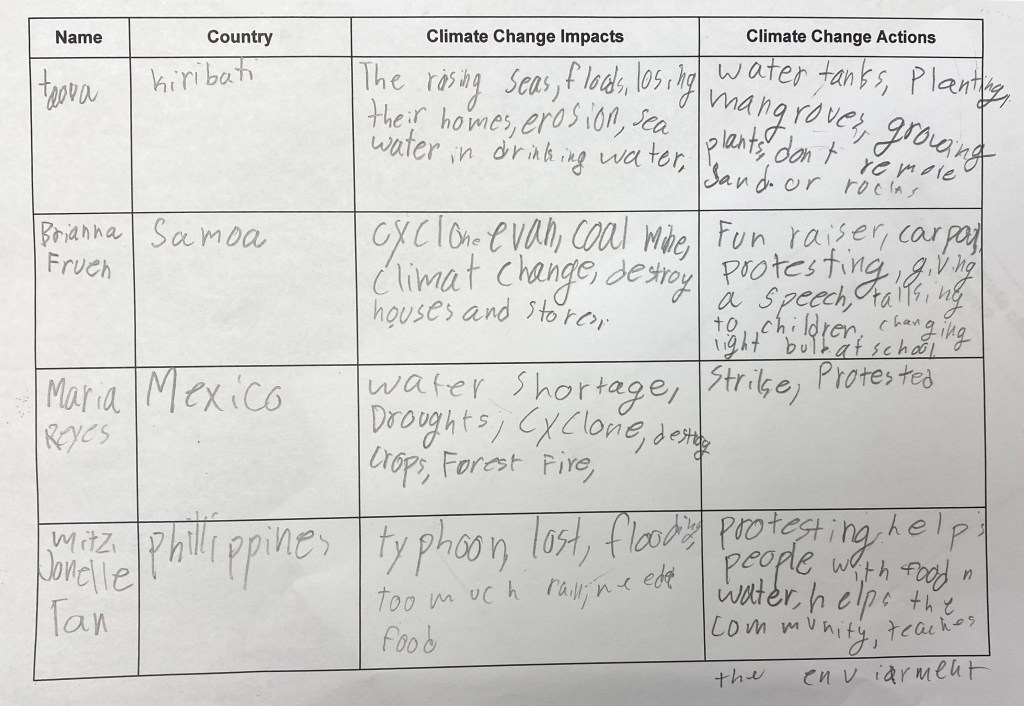 Name Country Climate Change Impacts Climate Change Actions
taova
Kiribati
The rising seas, floods, losing
their homes, erosion, sea
water in drinking water,
water tanks, Planting,
mangroves, growing
plants, don't remove
Sand or rocks
Brianna
Frueh
Samoa
Cyclone evan, coal Mine,
climat change, destroy
houses and stores,
Fun raiser, carpool,
protesting, giving
a speech, talking
to children, changing
light bulb at school
Maria
REYES
Mexico
water shortage,
Droughts, Cyclone, destroy
Crops, Forest Fire,
Strike, Protested
Mitzi
Jonelle
Tan
phillippines
typhoon, lost, flooding,
too much rain, need
food
protesting, helps
people with food n
water, helps the
community, teaches
the enviarment